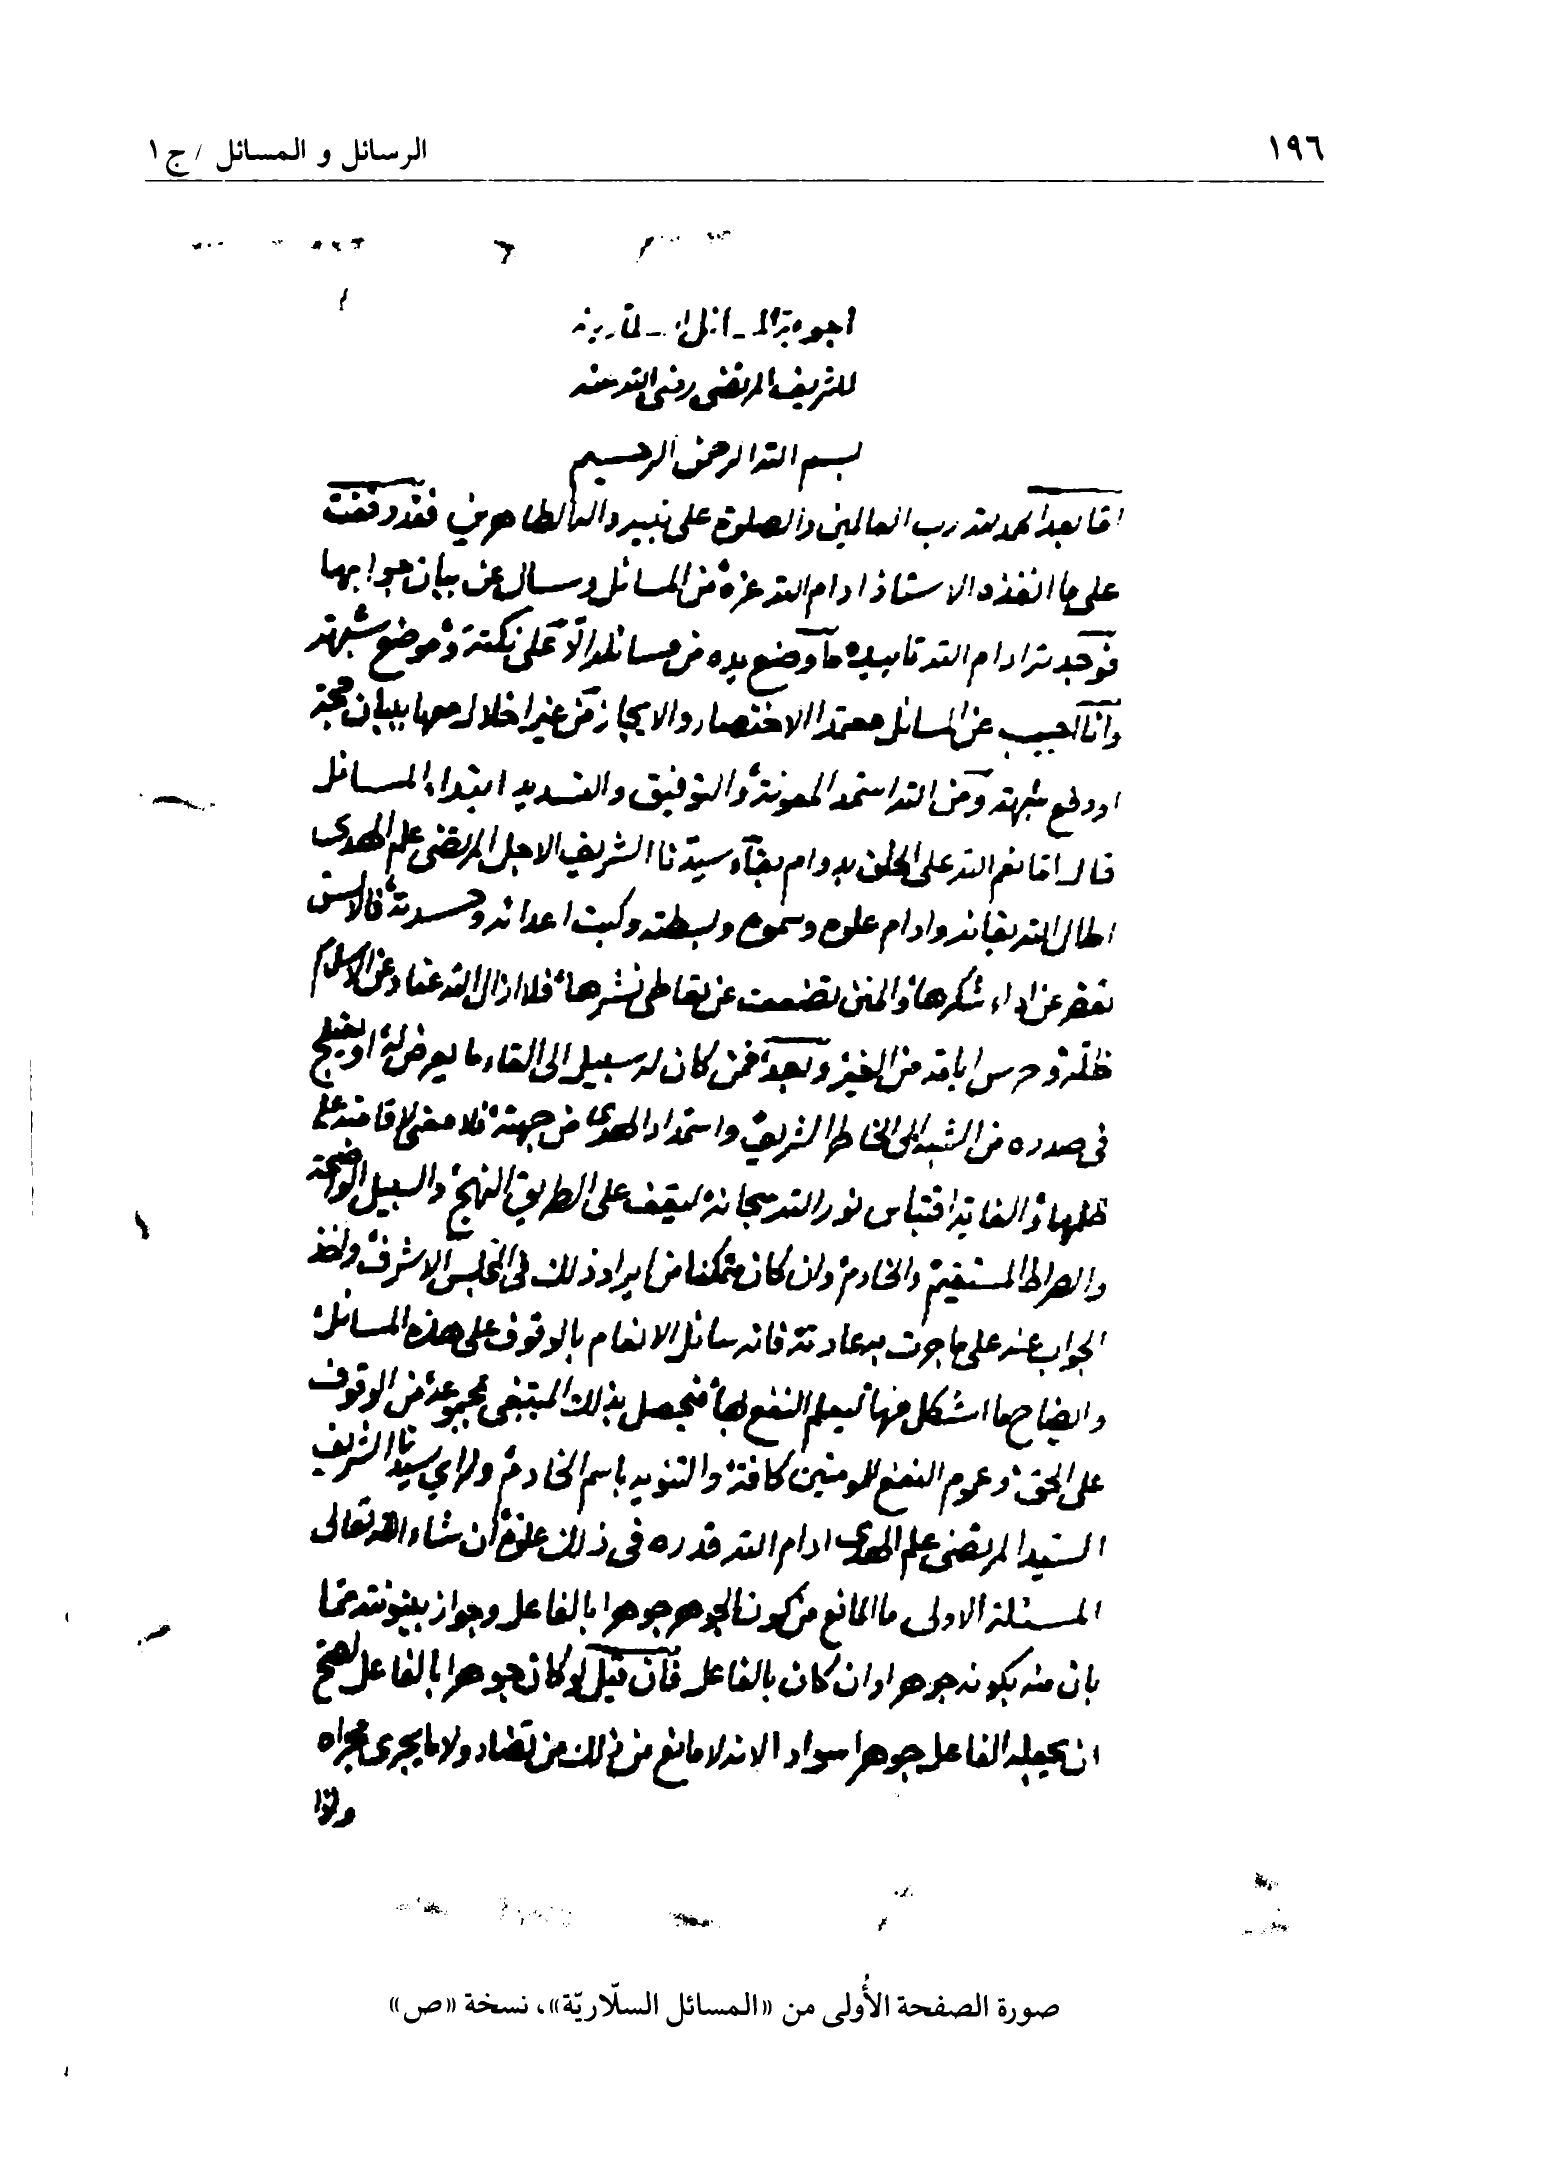 ١٩٦
الرسائل و المسائل / ج ١
اجوبة
للشريف المرتضى رضى الله عنه
بسم الله الرحمن الرحيم
امّا بعد الحمد لله رب العالمين والصلوة على نبيه واله الطاهرين فقد وقفت
على ما انفذه الاستاذ ادام الله عزه من المسائل وسال عن بيان جوابها
فوجدته ادام الله تاييده ما وضع يده من مسائله الّا على نكتة وموضع شبهة
وانا اجيب عن المسائل معتمدا الاختصار والايجاز من غير اخلال معها ببيان حجة
او دفع شبهة ومن الله استمد المعونة والتوفيق والتسديد ابتداء المسائل
قال امّا نعم الله على الخلق بدوام بقاء سيدنا الشريف الاجل المرتضى علم الهدى
اطال الله بقائه وادام علوه وسموه وبسطته وكبت اعدائه وحسدته فالالسن
تقصر عن اداء شكرها والمنن تضعف عن تعاطى نشرها فلا ازال الله عنا وعن الاسلام
ظلّه وحرس ايامه من الغير وبعد فمن كان له سبيل الى القاء ما يعرض له او يختلج
فى صدره من الشبه الى الخاطر الشريف واستمداد الهدى من جهته فلا معنى لاقامته على
ظلمها والغاية اقتباس نور الله سبحانه ليقف على الطريق النهج والسبيل الواضحة
والصراط المستقيم والخادم وان كان متمكنا من ايراد ذلك فى المجلس الاشرف واخذ
الجواب عنه على ما جرت به عادته فانه سائل الانعام بالوقوف على هذه المسائل
وايضاح ما اشكل منها ليعلم النفع بها فيحصل بذلك المبتغى مجموعة من الوقوف
على الحق وعموم النفع للمومنين كافة والتنويه باسم الخادم ولراي سيدنا الشريف
السيد المرتضى علم الهدى ادام الله قدره فى ذلك علوه ان شاء الله تعالى
المسئلة الاولى ما المانع من كون الجوهر جوهرا بالفاعل وجواز بينونته مما
بان منه بكونه جوهرا وان كان بالفاعل فان قيل لو كان جوهرا بالفاعل لصح
ان يجعله الفاعل جوهرا سوادا لانه لا مانع من ذلك من تضاد ولا ما يجرى مجراه
صورة الصفحة الأُولى من «المسائل السلّاريّة»، نسخة «ص»